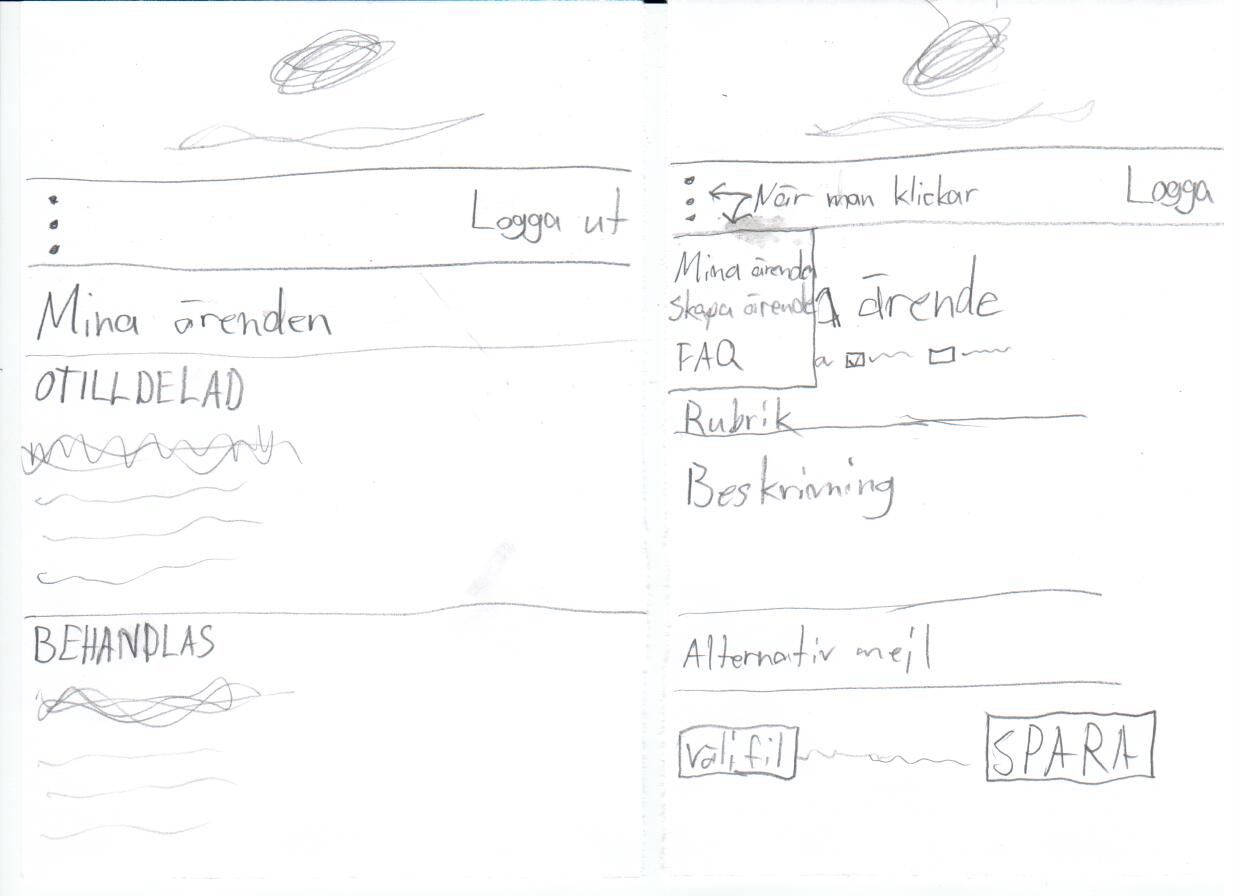 Logga ut
Mina ärenden
OTILLDELAD
BEHANDLAS
När man klickar
Logga
Mina ärende
Skapa ärende
FAQ
ärende
a
Rubrik
Beskrivning
Alternativ mejl
Välj fil
SPARA